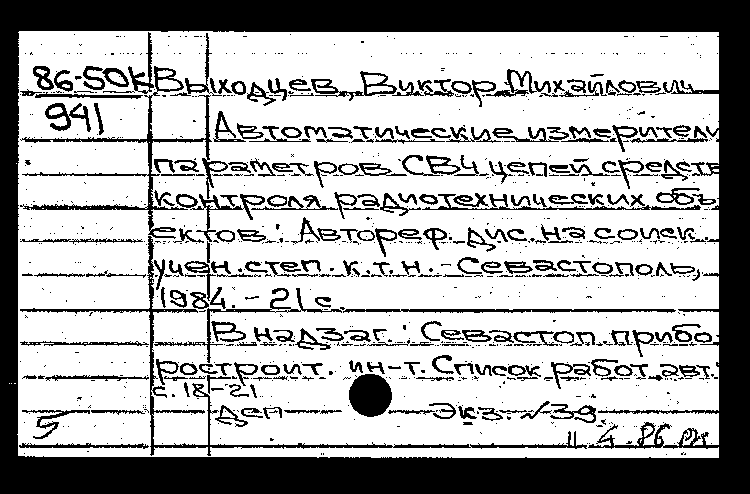 86-50к Выходцев, Виктор Михайлович
941 Автоматические измерители
параметров СВЧ цепей средств
контроля радиотехнических объ
ектов : Автореф. дис. на соиск.
учен. степ. к. т. н. - Севастополь,
1984. - 21 с.
В надзаг. : Севастоп. прибо
ростроит. ин-т. Список работ авт.
с. 18-21
5 Деп Экз. № 39.
11. 4. 86